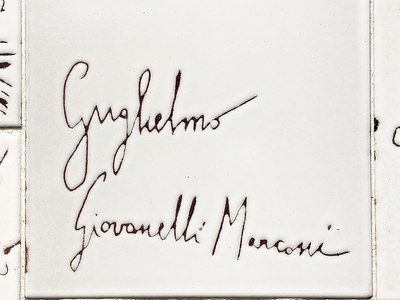 Guglielmo
Giovanelli Marconi